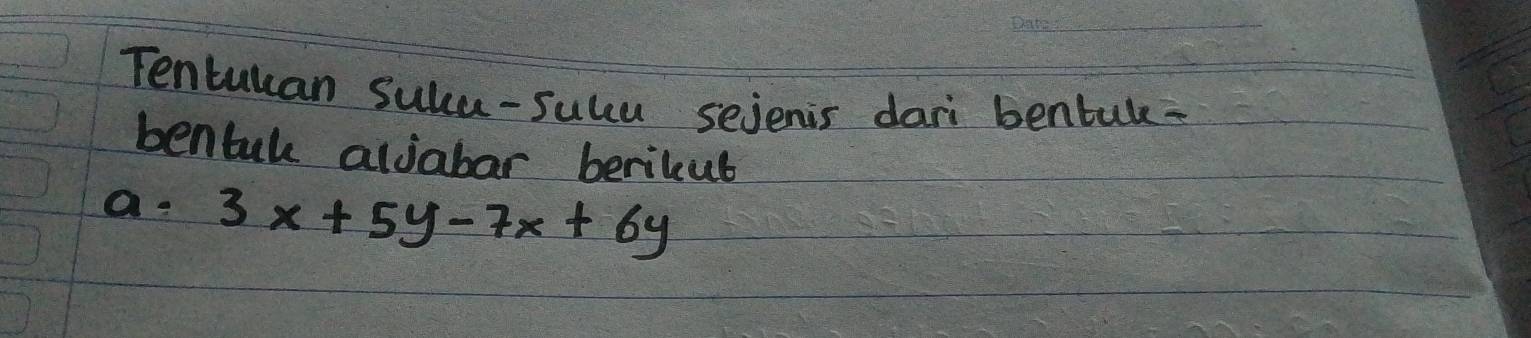 Date:
Tentukan suku-suku sejenis dari bentuk-
bentuk aljabar berikut
a. 3x + 5y - 7x + 6y